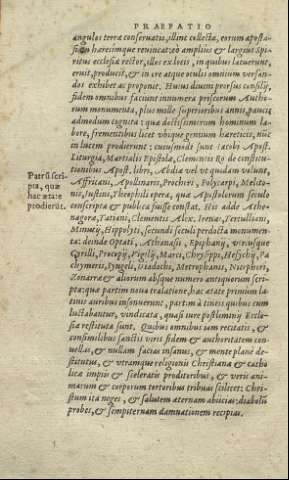 PRAEFATIO
angulos terrae conseruatis, illinc collectae, eorum aposta-
siam haeresimque reuincat: eò amplius & largius Spi-
ritus ecclesiae rector, illos ex locis, in quibus latuerunt,
eruit, producit, & in re atque oculis omnium versan-
dos exhibet ac proponit. Huius diuini prorsus consilij,
fidem omnibus faciunt innumera priscorum Autho-
rum monumenta, plus mille superioribus annis, paucis
admodum cognita: quae doctissimorum hominum la-
bore, frementibus licet vbique gentium haereticis, nūc
in lucem prodierunt: cuiusmodi sunt Iacobi Apost.
Liturgia, Martialis Epistolae, Clementis Ro de constitu-
tionibus Apost. libri, Abdiae vel vt quidam volunt,
Patrū scri-
pta, quae
hac aetate
prodierūt.
Affricani, Apollinaris, Prochori, Polycarpi, Melito-
nis, Iustini, Theophili opera, quae Apostolorum seculo
conscripta & publica fuisse constat. His adde Athe-
nagorae, Tatiani, Clementis Alex. Irenaei, Tertulliani,
Minucij, Hippolyti, secundi seculi perdocta monumen-
ta: deinde Optati, Athanasij, Epiphanij, vtriusque
Cyrilli, Procopij, Vigilij, Marci, Chrysippi, Hesychij, Pa
chymeris, Syngeli, Diadochi, Metaphrastis, Nicephori,
Zonarae & aliorum absque numero antiquorum scri-
pta: quae partim noua tralatione, hac aetate primùm la-
tinis auribus insonuerunt, partim à tineis quibus cum
luctabantur, vindicata, quasi iure postliminij Eccle-
siae restituta sunt. Quibus omnibus iam recitatis, &
consimilibus sanctis viris fidem & authoritatem con-
uellas, & nullam facias insanus, & mente planè de-
stitutus, & vtramque religionis Christianae & catho-
licae impiis & sceleratis proditoribus, & veris ani-
marum & corporum tortoribus tribuas scilicet: Chri-
stum ita neges, & salutem aternam abiicias: diaboli
probes, & sempiternam damnationem recipias.